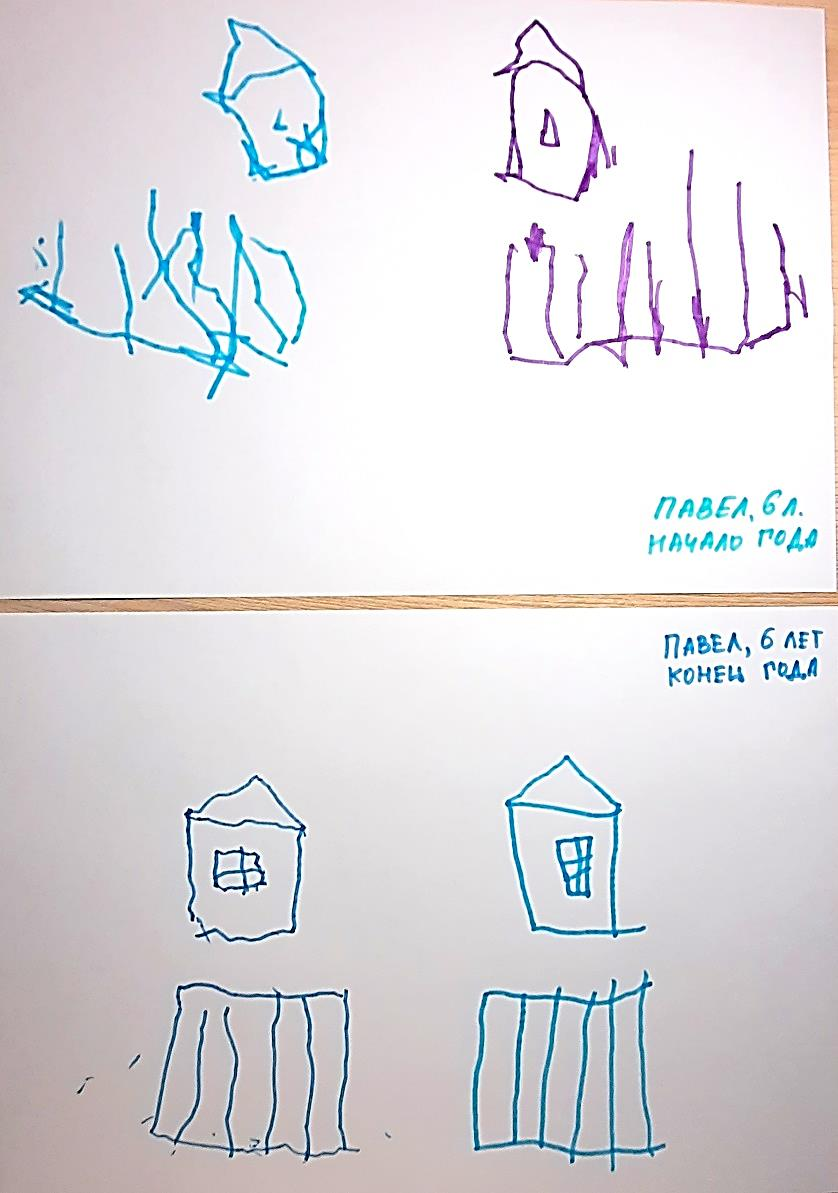 ПАВЕЛ, 6 Л.
НАЧАЛО ГОДА
ПАВЕЛ, 6 ЛЕТ
КОНЕЦ ГОДА